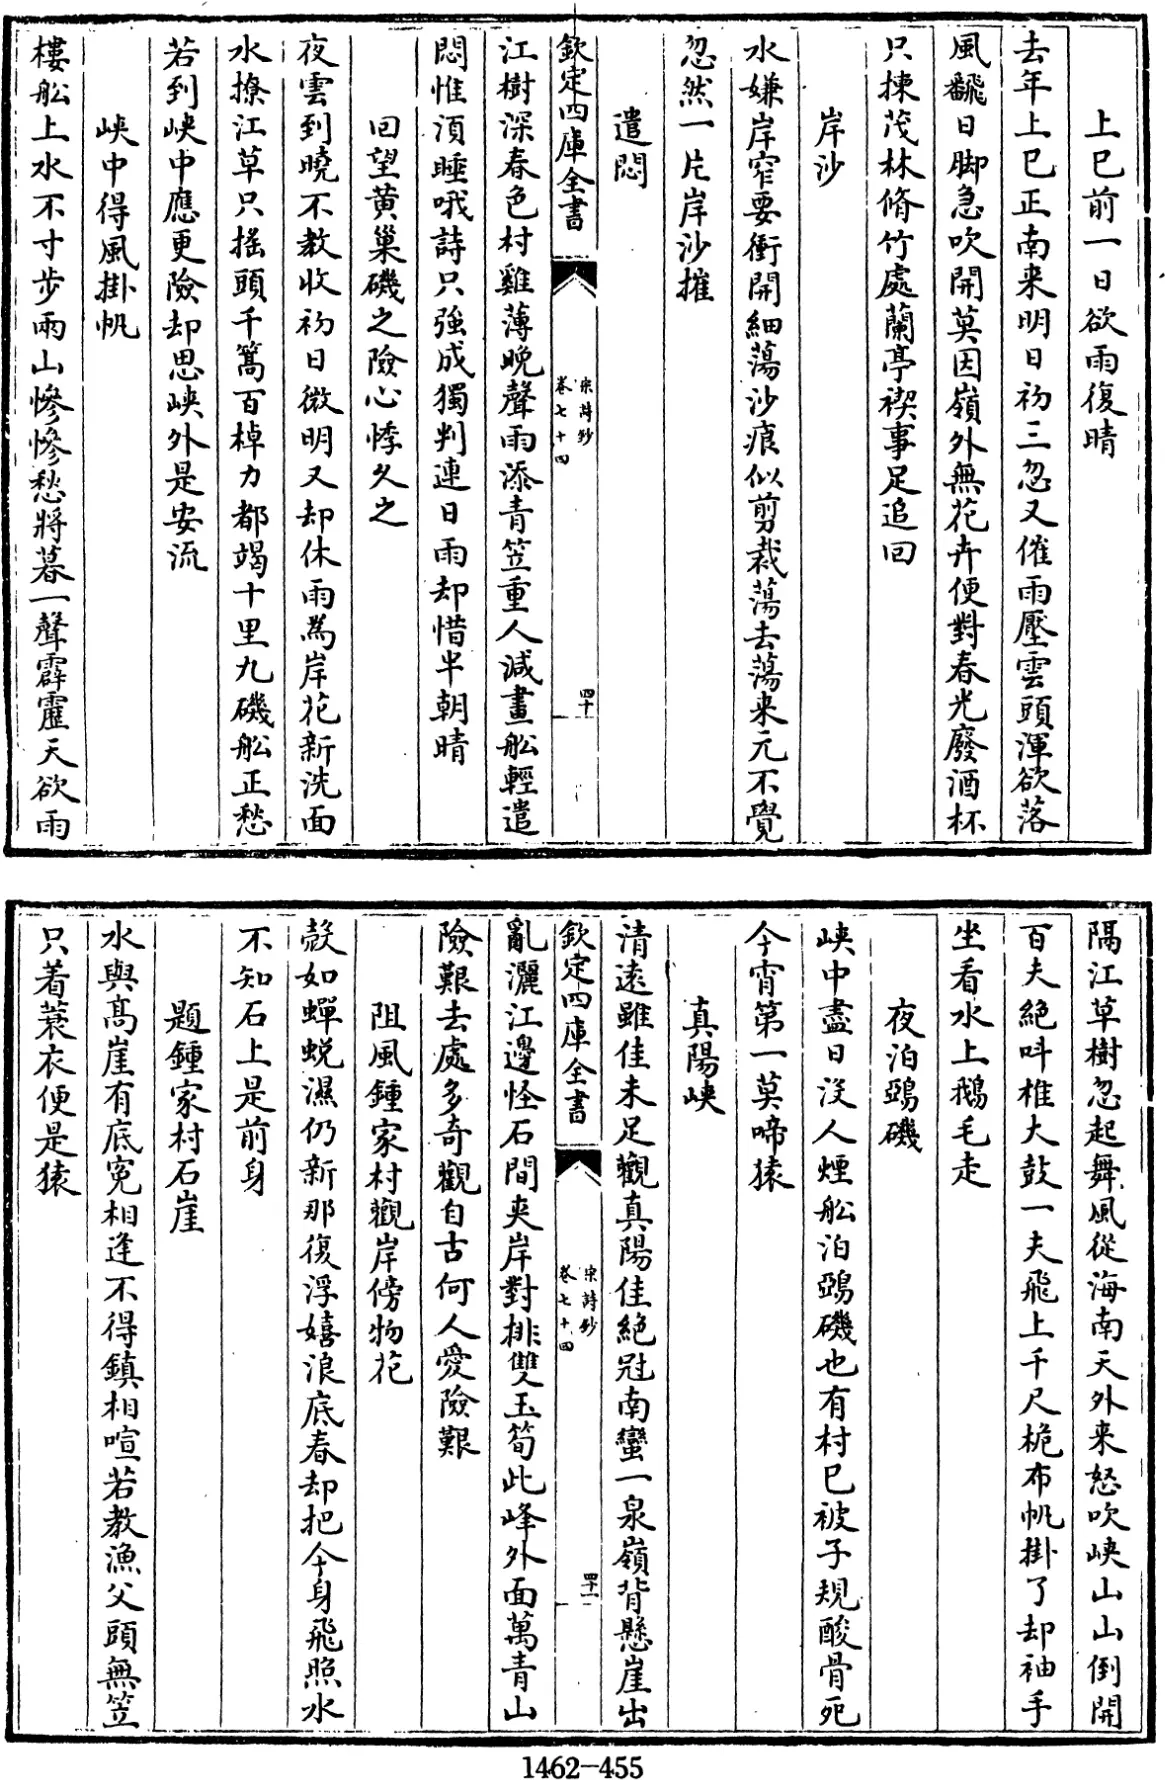 上巳前一日欲雨復晴
去年上巳正南来明日初三忽又催雨壓雲頭渾欲落
風飜日脚急吹開莫因嶺外無花卉便對春光廢酒杯
只揀茂林脩竹處蘭亭禊事足追回
岸沙
水嫌岸窄要衝開細蕩沙痕似剪裁蕩去蕩来元不覺
忽然一片岸沙摧
遣悶
欽定四庫全書
宋詩鈔
卷七十四
四十
江樹深春色村雞薄晚聲雨添青笠重人減畫船輕遣
悶惟湏睡哦詩只強成獨判連日雨却惜半朝晴
回望黄巢磯之險心悸久之
夜雲到曉不教收初日微明又却休雨為岸花新洗面
水撩江草只揺頭千篙百棹力都竭十里九磯船正愁
若到峽中應更險却思峽外是安流
峽中得風掛帆
樓船上水不寸步兩山慘慘愁將暮一聲霹靂天欲雨
隔江草樹忽起舞風從海南天外来怒吹峽山山倒開
百夫絶呌椎大鼓一夫飛上千尺桅布帆掛了却袖手
坐看水上鵝毛走
夜泊鵶磯
峽中盡日没人煙船泊鵶磯也有村已被子規酸骨死
今宵第一莫啼猿
真陽峽
清逺雖佳未足觀真陽佳絶冠南蠻一泉嶺背懸崖出
欽定四庫全書
宋詩鈔
卷七十四
四十一
亂灑江邊怪石間夾岸對排雙玉筍此峰外面萬青山
險艱去處多奇觀自古何人愛險艱
阻風鍾家村觀岸傍物花
殻如蟬蜕濕仍新那復浮嬉浪底春却把今身飛照水
不知石上是前身
題鍾家村石崖
水與髙崖有底寃相逢不得鎮相喧若教漁父頭無笠
只着蓑衣便是猿
1462-455